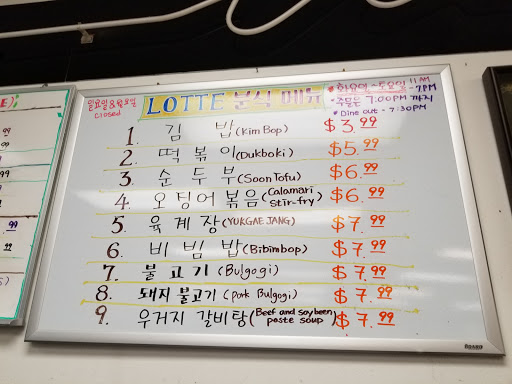 일요일&월요일
closed
LOTTE 분식 메뉴
* 화요일~토요일 11AM
-7PM
* 주문는 7:00PM 까지
* Dine out - 7:30PM
1. 김 밥 (Kim Bop) $3.99
2. 떡 볶 이 (Dukboki) $5.99
3. 순 두 부 (Soon Tofu) $6.99
4. 오 징어 볶음 (Calamari stir-fry) $6.99
5. 육 계 장 (YUKGAE JANG) $7.99
6. 비 빔 밥 (Bibimbop) $7.99
7. 불 고 기 (Bulgogi) $7.99
8. 돼지 불고기 (pork Bulgogi) $7.99
9. 우거지 갈비탕 (Beef and soybeen paste soup) $7.99
99
99
99
99